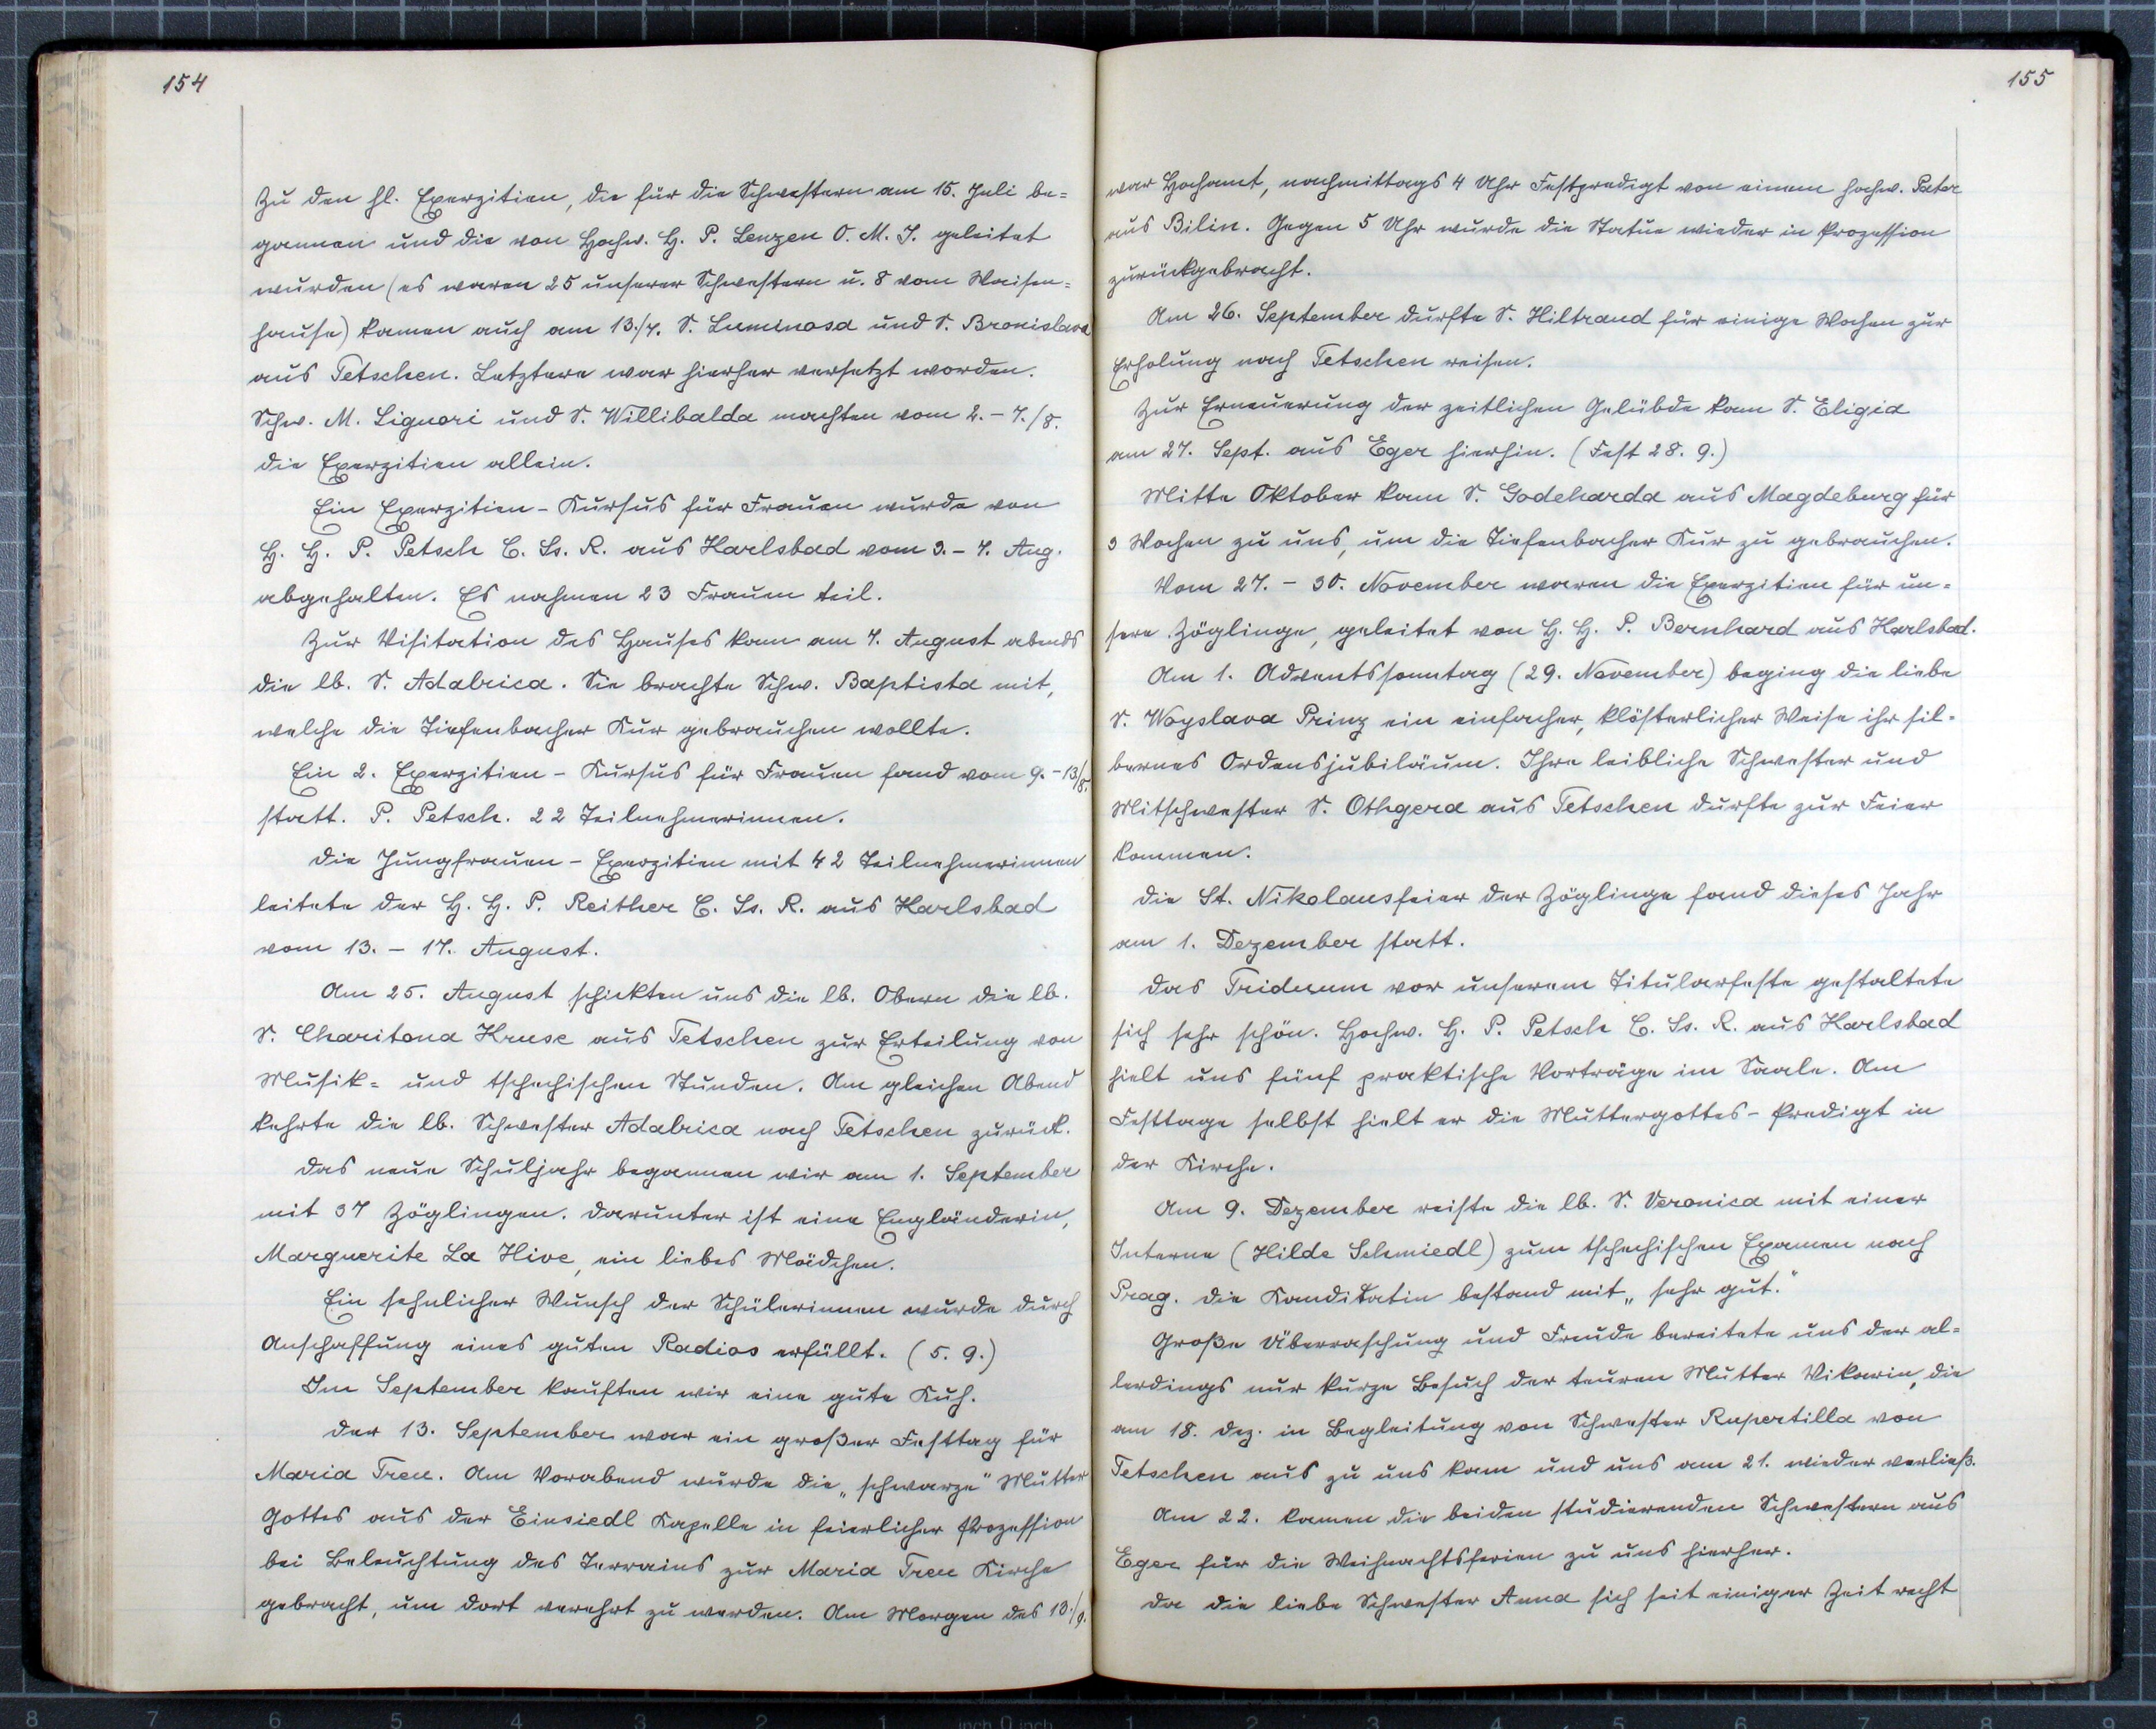 154
Zu den hl. Exerzitien, die für die Schwestern am 15. Juli be=
gannen und die von Hochw. H. P. Lenzen O. M. J. geleitet
wurden (es waren 25 unserer Schwestern u. 8 vom Waisen=
hause) kamen auch am 13./7. S. Luminosa und S. Bronislava
aus Tetschen. Letztere war hierher versetzt worden.
Schw. M. Liguori und S. Willibalda machten vom 2. – 7./8.
die Exerzitien allein.
Ein Exerzitien - Kursus für Frauen wurde von
H. H. P. Petsch C. Ss. R. aus Karlsbad vom 3. – 7. Aug.
abgehalten. Es nahmen 23 Frauen teil.
Zur Visitation des Hauses kam am 7. August abends
die lb. S. Adalrica. Sie brachte Schw. Baptista mit,
welche die Tiefenbacher Kur gebrauchen wollte.
Ein 2. Exerzitien - Kursus für Frauen fand vom 9. – 13/8.
statt. P. Petsch. 22 Teilnehmerinnen.
Die Jungfrauen - Exerzitien mit 42 Teilnehmerinnen
leitete der H. H. P. Reither C. Ss. R. aus Karlsbad
vom 13. – 17. August.
Am 25. August schickten uns die lb. Obern die lb.
S. Charitona Kruse aus Tetschen zur Erteilung von
Musik= und tschechischen Stunden. Am gleichen Abend
kehrte die lb. Schwester Adalrica nach Tetschen zurück.
Das neue Schuljahr begannen wir am 1. September
mit 37 Zöglingen. Darunter ist eine Engländerin,
Marguerite La Hive, ein liebes Mädchen.
Ein sehnlicher Wunsch der Schülerinnen wurde durch
Anschaffung eines guten Radios erfüllt. (5. 9.)
Im September kauften wir eine gute Kuh.
Der 13. September war ein großer Festtag für
Maria Treu. Am Vorabend wurde die „schwarze" Mutter
Gottes aus der Einsiedl Kapelle in feierlicher Prozession
bei Beleuchtung des Terrains zur Maria Treu Kirche
gebracht, um dort verehrt zu werden. Am Morgen des 13./9.
155
war Hochamt, nachmittags 4 Uhr Festpredigt von einem hochw. Pater
aus Bilin. Gegen 5 Uhr wurde die Statue wieder in Prozession
zurückgebracht.
Am 26. September durfte S. Hiltraud für einige Wochen zur
Erholung nach Tetschen reisen.
Zur Erneuerung der zeitlichen Gelübde kam S. Eligia
am 27. Sept. aus Eger hierhin. (Fest 28. 9.)
Mitte Oktober kam S. Godeharda aus Magdeburg für
3 Wochen zu uns, um die Tiefenbacher Kur zu gebrauchen.
Vom 27. – 30. November waren die Exerzitien für un=
sere Zöglinge, geleitet von H. H. P. Bernhard aus Karlsbad.
Am 1. Adventssonntag (29. November) beging die liebe
S. Woyslava Prinz ein einfacher, klösterlicher Weise ihr sil=
bernes Ordensjubiläum. Ihre leibliche Schwester und
Mitschwester S. Othgera aus Tetschen durfte zur Feier
kommen.
Die St. Nikolausfeier der Zöglinge fand dieses Jahr
am 1. Dezember statt.
Das Triduum vor unserem Titularfeste gestaltete
sich sehr schön. Hochw. H. P. Petsch C. Ss. R. aus Karlsbad
hielt uns fünf praktische Vorträge im Saale. Am
Festtage selbst hielt er die Muttergottes - Predigt in
der Kirche.
Am 9. Dezember reiste die lb. S. Veronica mit einer
Interne (Hilde Schmiedl) zum tschechischen Examen nach
Prag. Die Kanditatin bestand mit „sehr gut."
Große Überraschung und Freude bereitete uns der al=
lerdings nur kurze Besuch der teuren Mutter Vikarin, die
am 18. Dez. in Begleitung von Schwester Rupertilla von
Tetschen aus zu uns kam und uns am 21. wieder verließ.
Am 22. kamen die beiden studierenden Schwestern aus
Eger für die Weihnachtsferien zu uns hierher.
Da die liebe Schwester Anna sich seit einiger Zeit recht
8 7 6 5 4 3 2 1 inch 0 inch 1 2 3 4 5 6 7 8 9